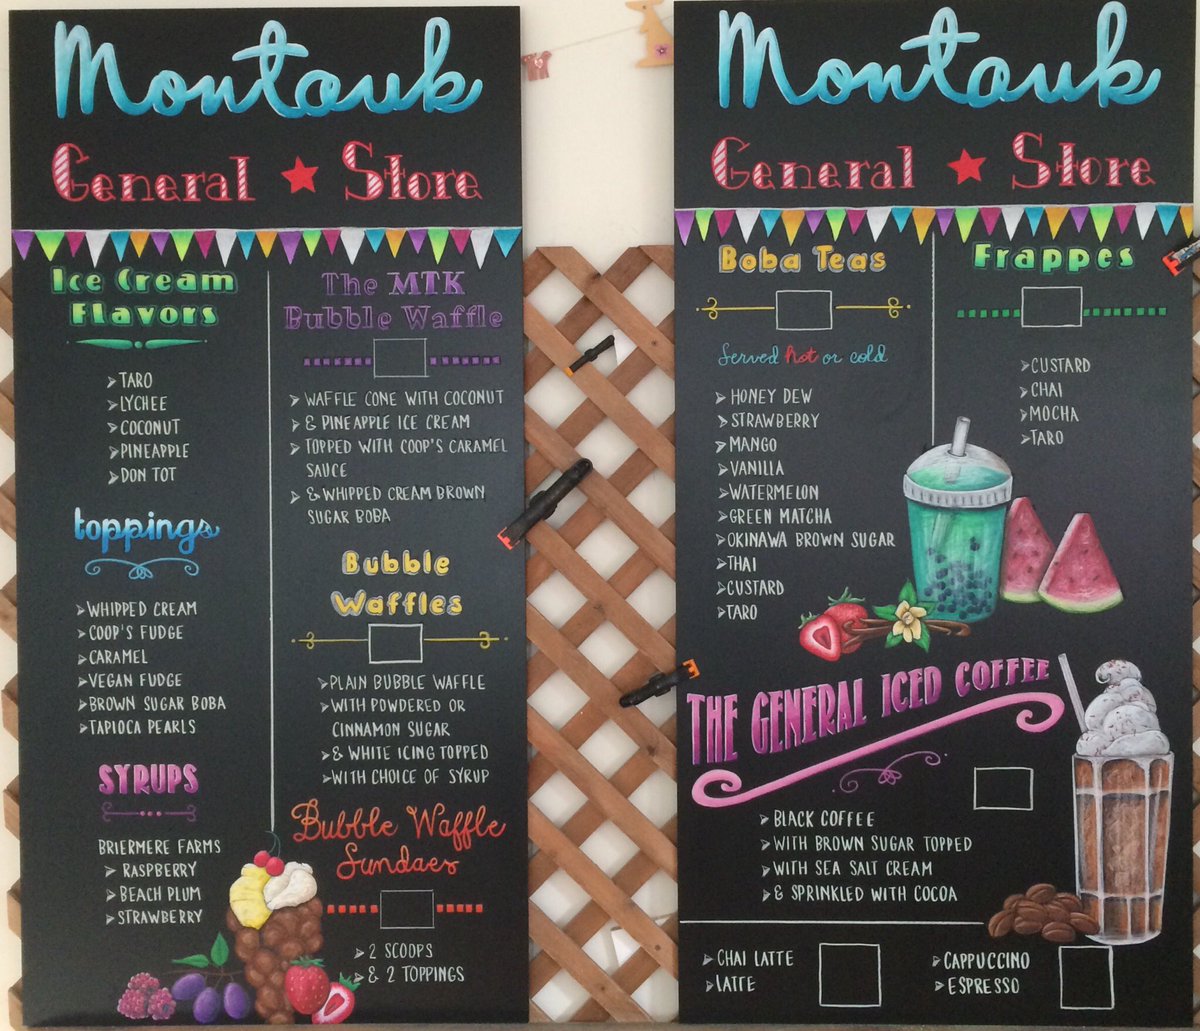 Montauk
General Store
Ice Cream
Flavors
TARO
LYCHEE
COCONUT
PINEAPPLE
DON TOT
toppings
WHIPPED CREAM
COOP'S FUDGE
CARAMEL
VEGAN FUDGE
BROWN SUGAR BOBA
TAPIOCA PEARLS
SYRUPS
BRIERMERE FARMS
RASPBERRY
BEACH PLUM
STRAWBERRY
The MTK
Bubble Waffle
WAFFLE CONE WITH COCONUT
& PINEAPPLE ICE CREAM
TOPPED WITH COOP'S CARAMEL
SAUCE
& WHIPPED CREAM BROWN
SUGAR BOBA
Bubble
Waffles
PLAIN BUBBLE WAFFLE
WITH POWDERED OR
CINNAMON SUGAR
& WHITE ICING TOPPED
WITH CHOICE OF SYRUP
Bubble Waffle
Sundaes
2 SCOOPS
& 2 TOPPINGS
Montauk
General Store
Boba Teas
Served hot or cold
HONEY DEW
STRAWBERRY
MANGO
VANILLA
WATERMELON
GREEN MATCHA
OKINAWA BROWN SUGAR
THAI
CUSTARD
TARO
Frappes
CUSTARD
CHAI
MOCHA
TARO
THE GENERAL ICED COFFEE
BLACK COFFEE
WITH BROWN SUGAR TOPPED
WITH SEA SALT CREAM
& SPRINKLED WITH COCOA
CHAI LATTE
LATTE
CAPPUCCINO
ESPRESSO